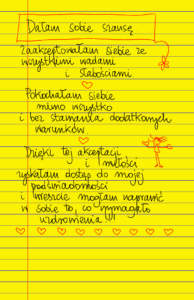 Dałam sobie szansę
Zaakceptowałam siebie ze
wszystkimi wadami
i słabościami
Pokochałam siebie
mimo wszystko
i bez stawiania dodatkowych
warunków
Dzięki tej akceptacji
i miłości
zyskałam dostęp do mojej
podświadomości
i wreszcie mogłam naprawić
w sobie to, co wymagało
uzdrowienia!!!